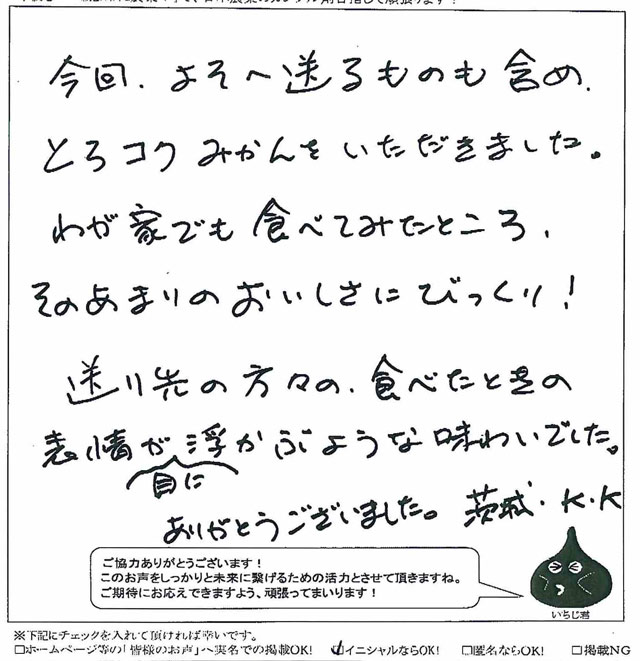 今回、よそへ送るものも含め、
とろコクみかんをいただきました。
わが家でも食べてみたところ、
そのあまりのおいしさにびっくり！
送り先の方々の、食べたときの
表情が目に浮かぶような味わいでした。
ありがとうございました。 茨城・K.K
ご協力ありがとうございます！
このお声をしっかりと未来に繋げるための活力とさせて頂きますね。
ご期待にお応えできますよう、頑張ってまいります！
いちじ君
※下記にチェックを入れて頂ければ幸いです。
□ホームページ等の「皆様のお声」へ実名での掲載OK! ☑イニシャルならOK! □匿名ならOK! □掲載NG